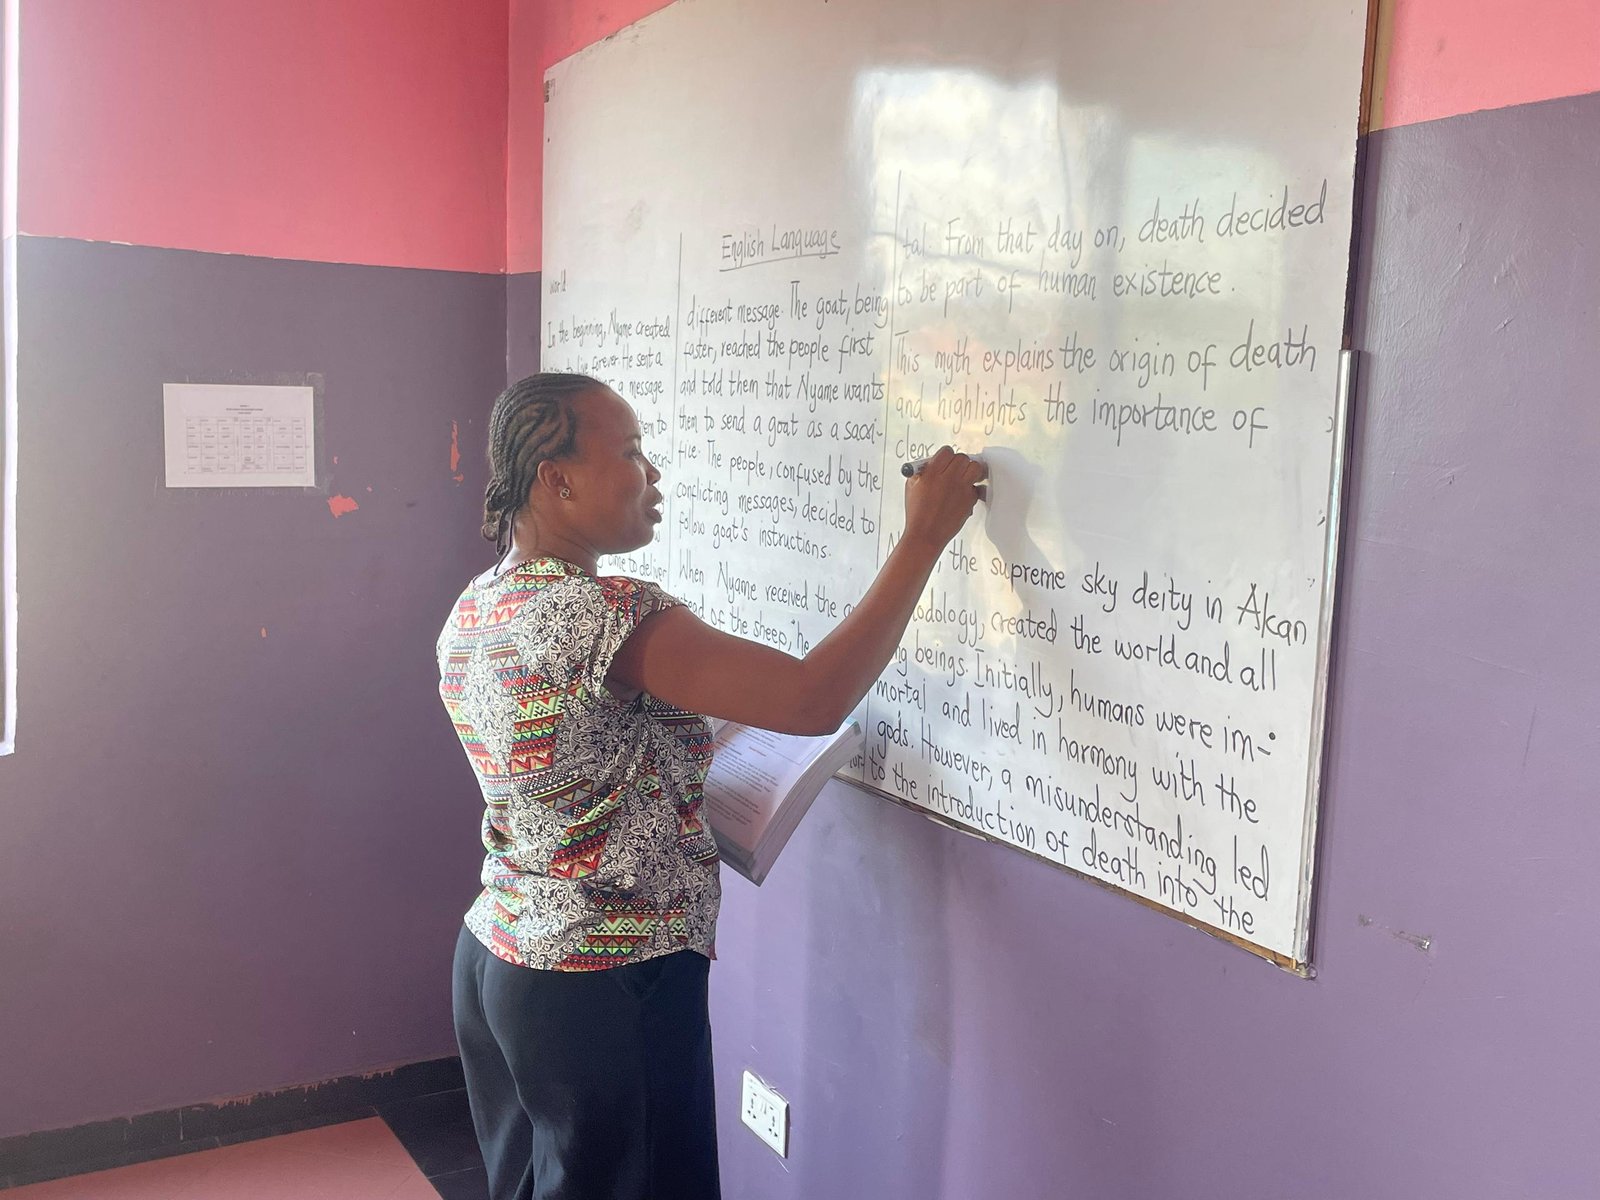 English Language
world
In the beginning, Nyame created
to live forever. He sent a
a message
to
sacri-
time to deliver
different message. The goat, being
faster, reached the people first
and told them that Nyame wants
them to send a goat as a sacri-
fice. The people, confused by the
conflicting messages, decided to
follow goat's instructions.
When Nyame received the
of the sheep, he
tal. From that day on, death decided
to be part of human existence.
This myth explains the origin of death
and highlights the importance of
clear
the supreme sky deity in Akan
created the world and all
beings. Initially, humans were im-
mortal and lived in harmony with the
gods. However, a misunderstanding led
to the introduction of death into the